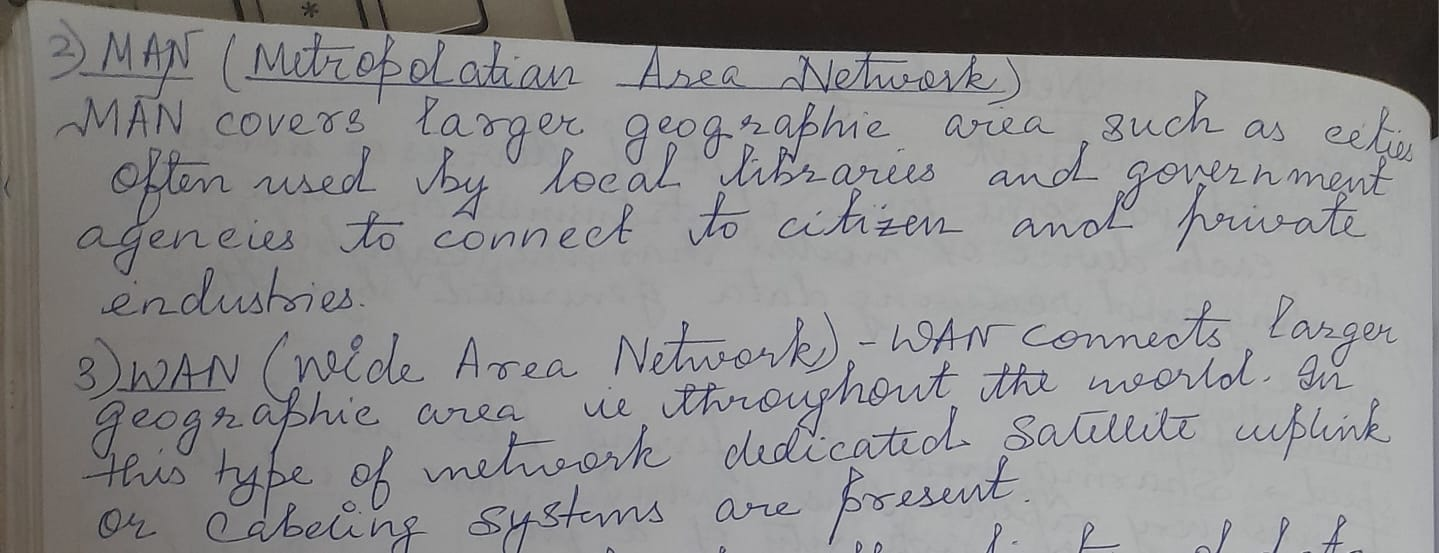 2) MAN (Metropolatian Area Network)
MAN covers larger geographic area such as cities
often used by local libraries and government
agencies to connect to citizen and private
industries.
3) WAN (Wide Area Network) - WAN connects larger
geographic area ie throughout the world. In
this type of network dedicated satellite uplink
or Cabeling systems are present.